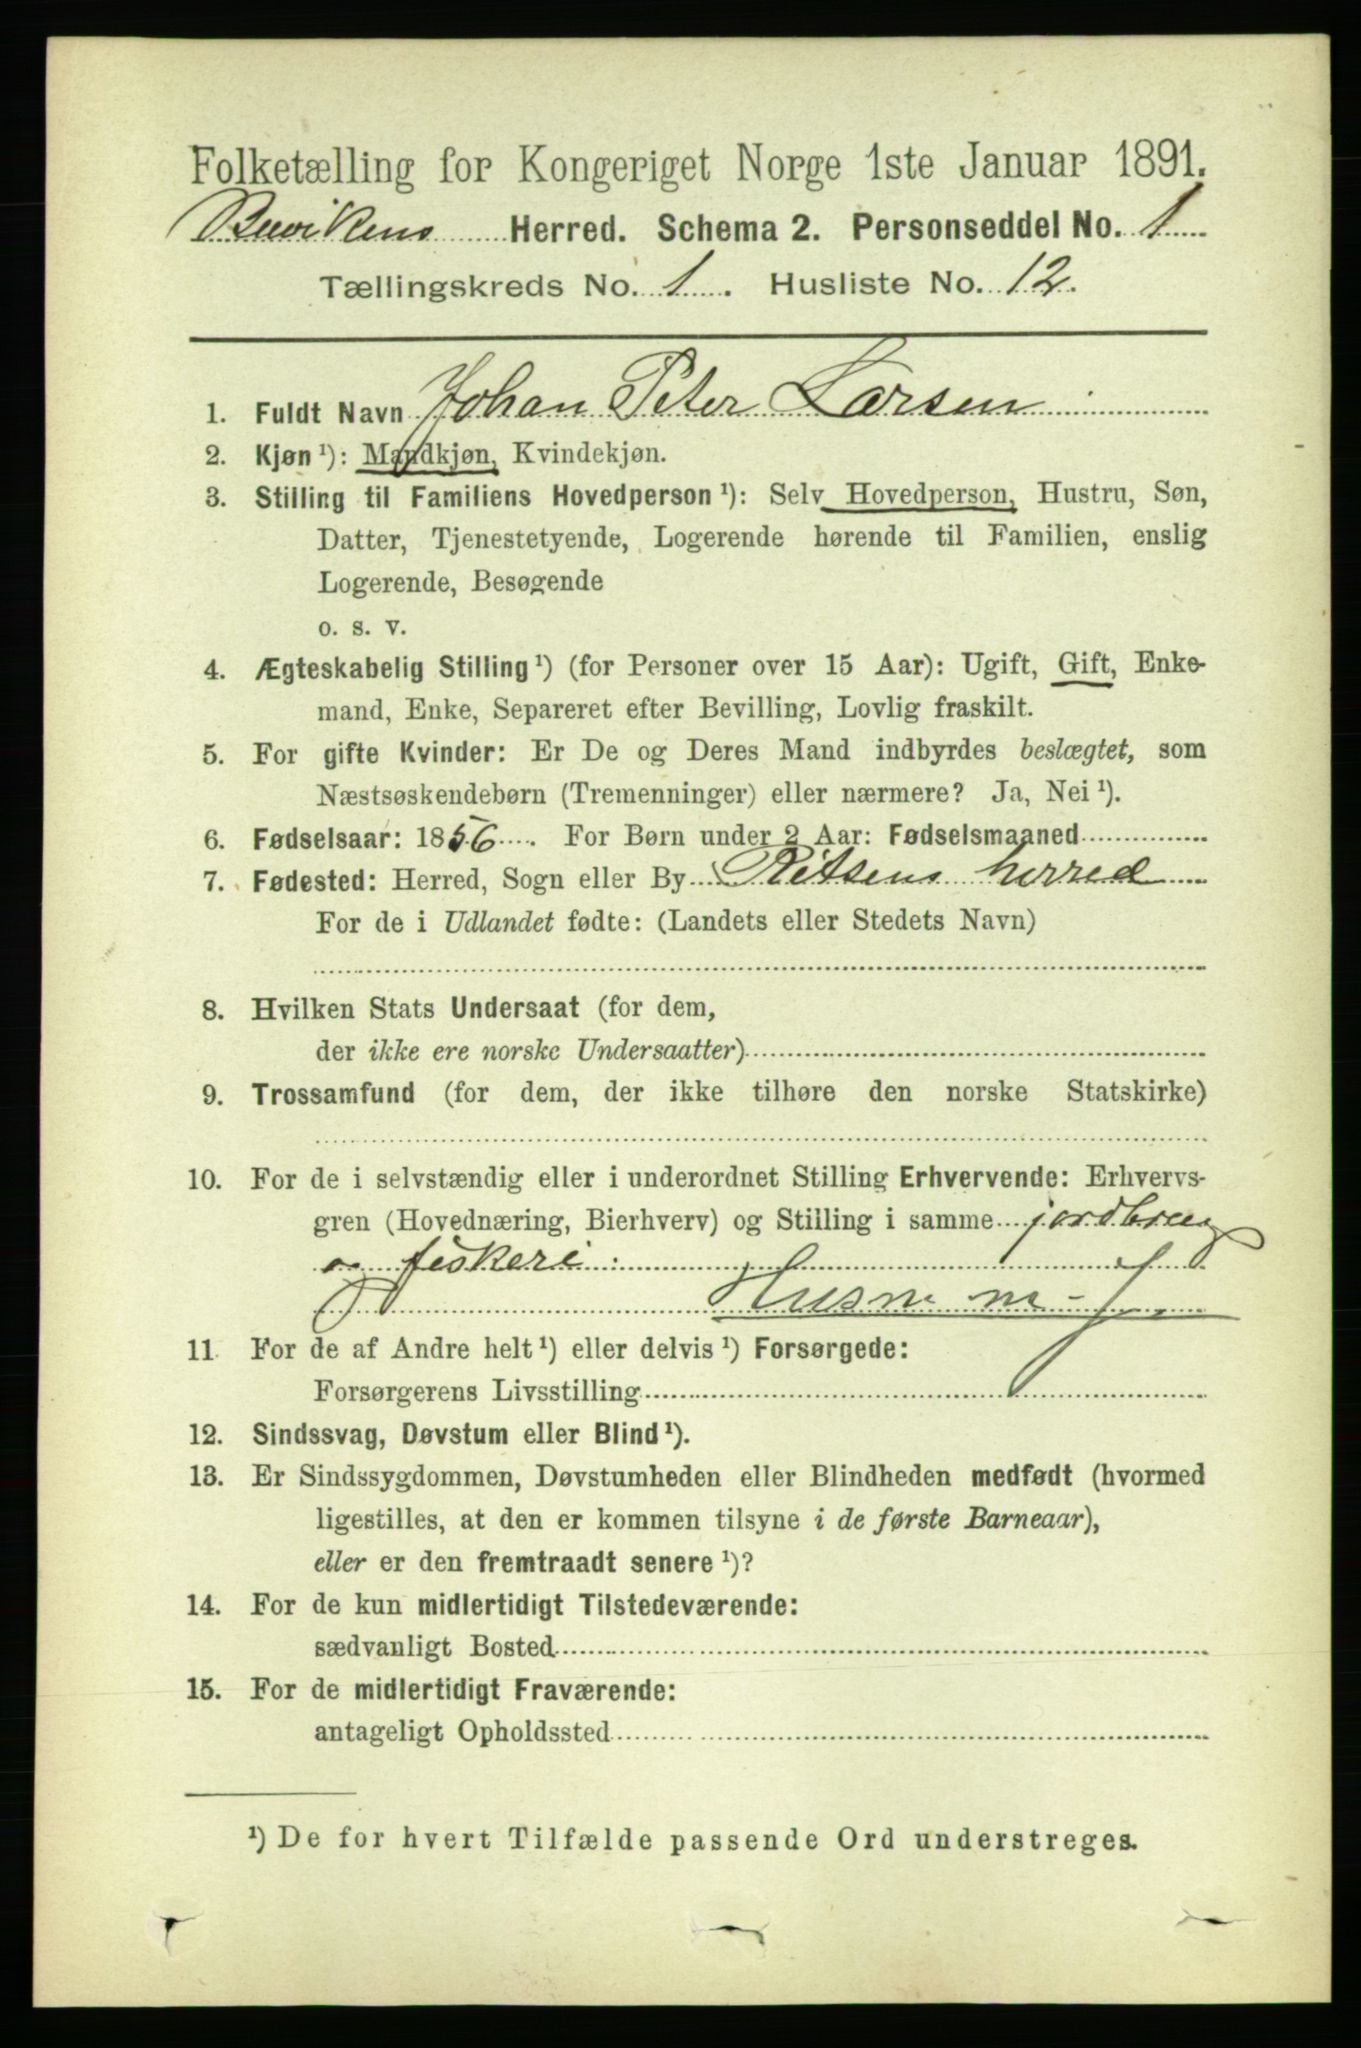 Folketælling for Kongeriget Norge 1ste Januar 1891.
Buvikens Herred. Schema 2. Personseddel No. 1
Tællingskreds No. 1. Husliste No. 12.
1. Fuldt Navn Johan Peter Larsen
2. Kjøn ¹): Mandkjøn, Kvindekjøn.
3. Stilling til Familiens Hovedperson ¹): Selv Hovedperson, Hustru, Søn,
Datter, Tjenestetyende, Logerende hørende til Familien, enslig
Logerende, Besøgende
o. s. v.
4. Ægteskabelig Stilling ¹) (for Personer over 15 Aar): Ugift, Gift, Enke-
mand, Enke, Separeret efter Bevilling, Lovlig fraskilt.
5. For gifte Kvinder: Er De og Deres Mand indbyrdes beslægtet, som
Næstsøskendebørn (Tremenninger) eller nærmere? Ja, Nei ¹).
6. Fødselsaar: 1856. For Børn under 2 Aar: Fødselsmaaned
7. Fødested: Herred, Sogn eller By Ritsens herred
For de i Udlandet fødte: (Landets eller Stedets Navn)
8. Hvilken Stats Undersaat (for dem,
der ikke ere norske Undersaatter)
9. Trossamfund (for dem, der ikke tilhøre den norske Statskirke)
10. For de i selvstændig eller i underordnet Stilling Erhvervende: Erhvervs-
gren (Hovednæring, Bierhverv) og Stilling i samme jordbrug
og fiskeri
Husm m
11. For de af Andre helt ¹) eller delvis ¹) Forsørgede:
Forsørgerens Livsstilling
12. Sindssvag, Døvstum eller Blind ¹).
13. Er Sindssygdommen, Døvstumheden eller Blindheden medfødt (hvormed
ligestilles, at den er kommen tilsyne i de første Barneaar),
eller er den fremtraadt senere ¹)?
14. For de kun midlertidigt Tilstedeværende:
sædvanligt Bosted
15. For de midlertidigt Fraværende:
antageligt Opholdssted
¹) De for hvert Tilfælde passende Ord understreges.